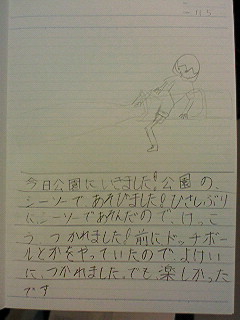 今日公園にいきました!公園の、
シーソーであそびました!ひさしぶり
にシーソーであそんだので、けっこ
うつかれました!前にドッチボー
ルとかをやっていたのでよけい
に、つかれました。でも楽しかった
です